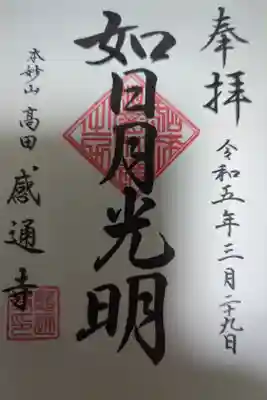 奉拝
令和五年三月二十九日
如日月光明
本妙山 高田 感通寺